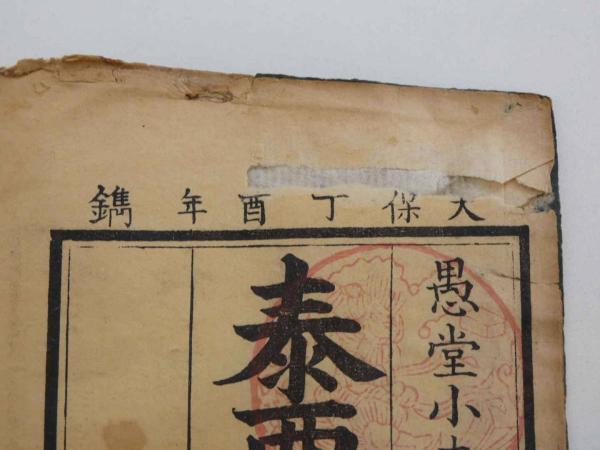 天保丁酉年鐫
愚堂小
泰西